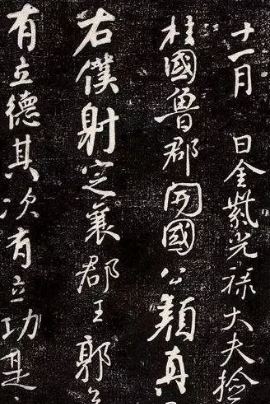 十一月 日金紫光禄大夫撿
柱國魯郡開國公顔真
右僕射定襄郡王郭
有立德其次有立功是